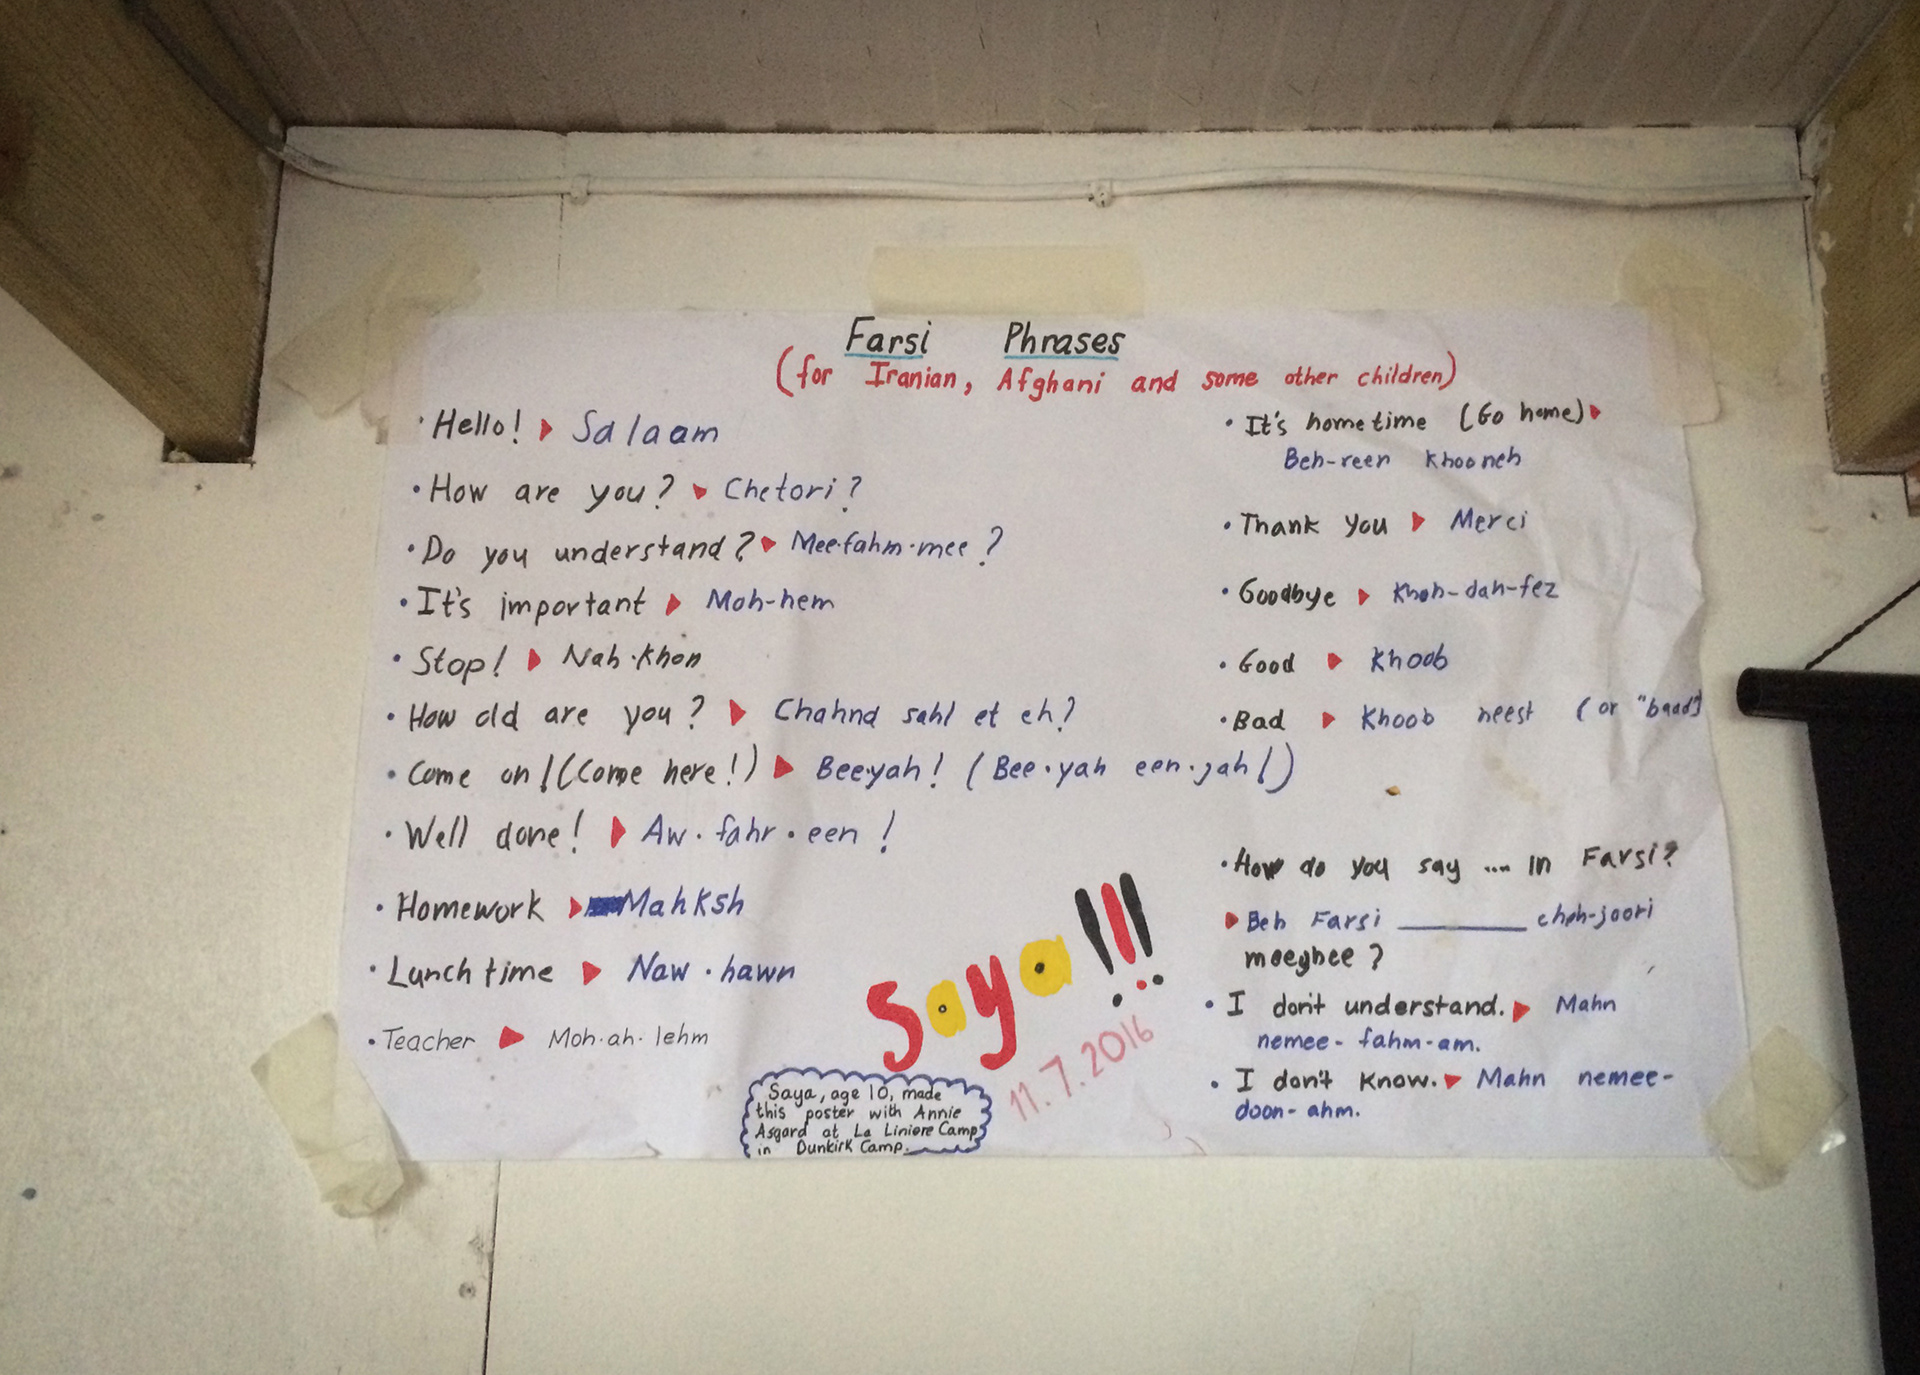 Farsi Phrases
(for Iranian, Afghani and some other children)
• Hello! Salaam
• How are you? Chetori?
• Do you understand? Mee·fahm·mee?
• It's important Moh-hem
• Stop! Nah·khon
• How old are you? Chahnd sahl et eh?
• Come on! (Come here!) Bee·yah! (Bee·yah een·jah!)
• Well done! Aw·fahr·een!
• Homework Mahksh
• Lunch time Naw·hawn
• Teacher Moh·ah·lehm
• It's hometime (Go home)
Beh-reen khooneh
• Thank you Merci
• Goodbye Khoh-dah-fez
• Good Khoob
• Bad Khoob neest (or "baad")
• How do you say .... in Farsi?
Beh Farsi ________ choh-joori
meeghee?
• I don't understand. Mahn
nemee-fahm-am.
• I don't know. Mahn nemee-
doon-ahm.
Saya!!!
11.7.2016
Saya, age 10, made
this poster with Annie
Asgard at La Liniere Camp
in Dunkirk Camp.